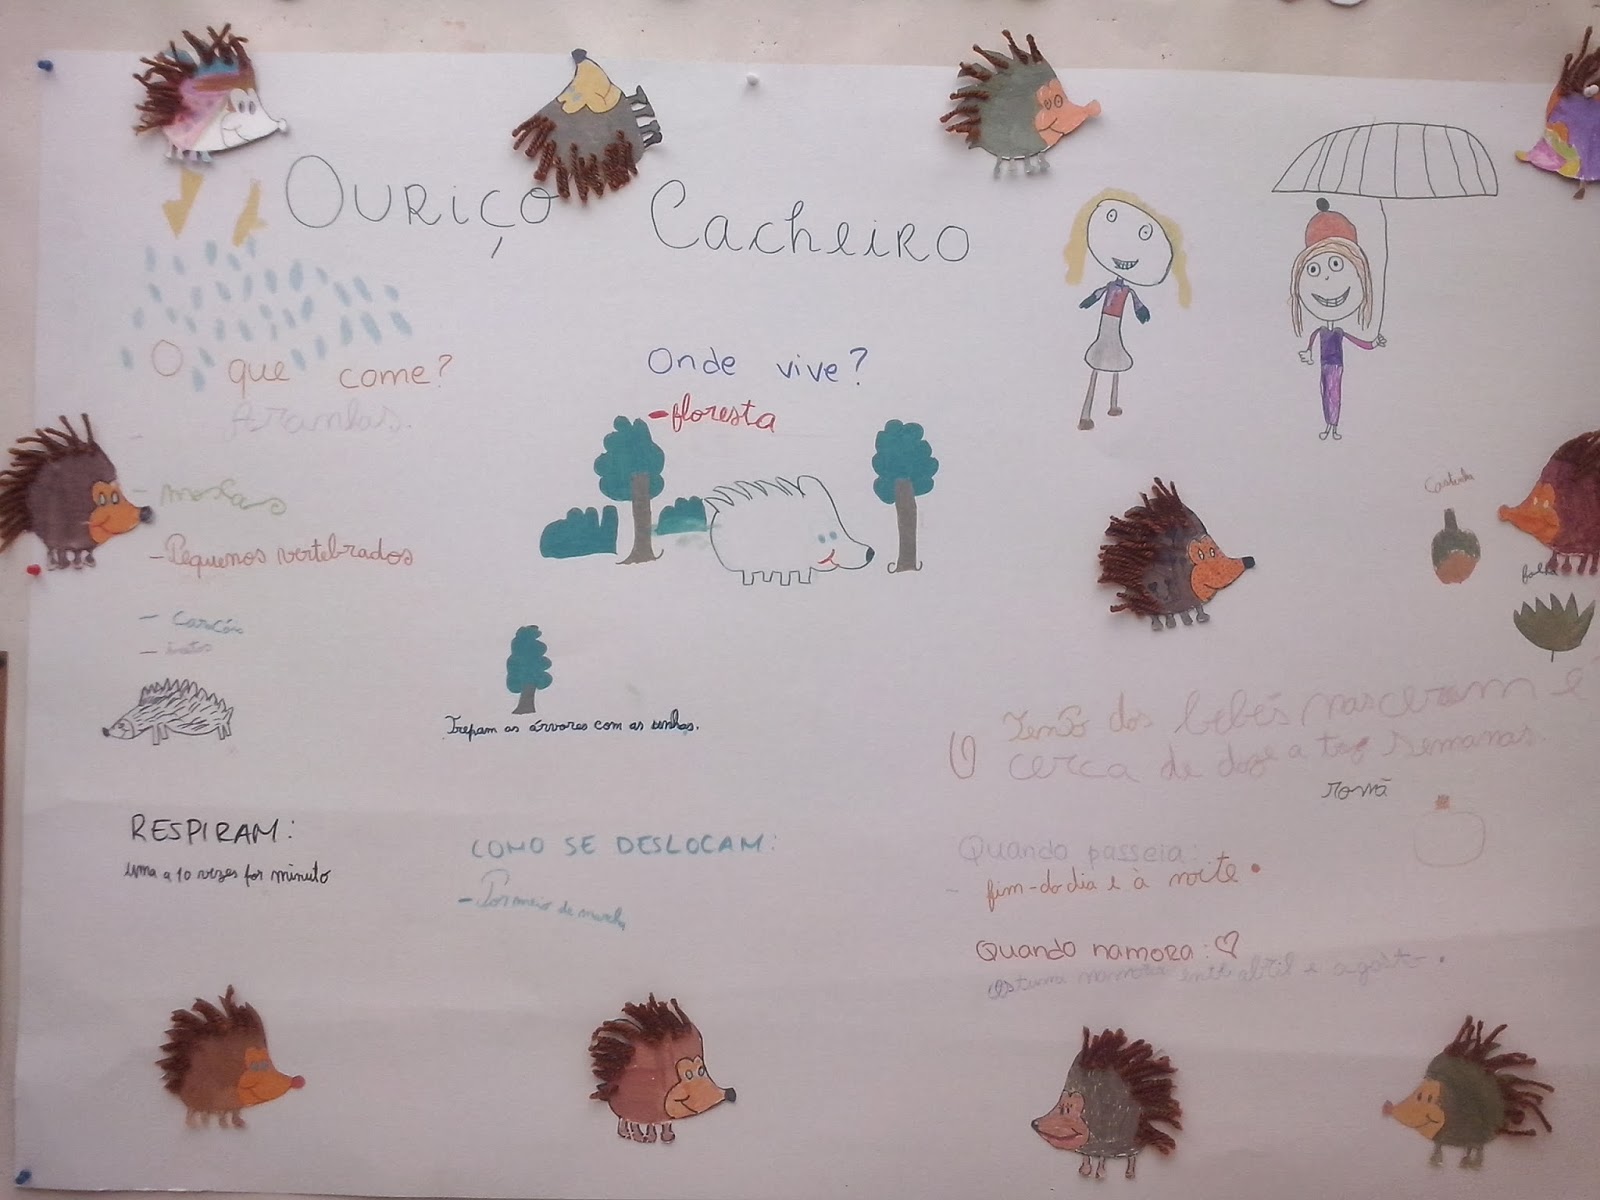 Ouriço Cacheiro
O que come?
- Aranhas.
- moscas
- Pequenos vertebrados
- Caracóis
Onde vive?
- floresta
Trepam as árvores com as unhas.
Castanha
folha
romã
bebés nasceram e
cerca de doze a semanas.
RESPIRAM:
uma a 10 vezes por minuto
COMO SE DESLOCAM:
- Por meio de
Quando passeia:
- fim-do dia e à noite.
Quando namora:
entre abril e agosto.